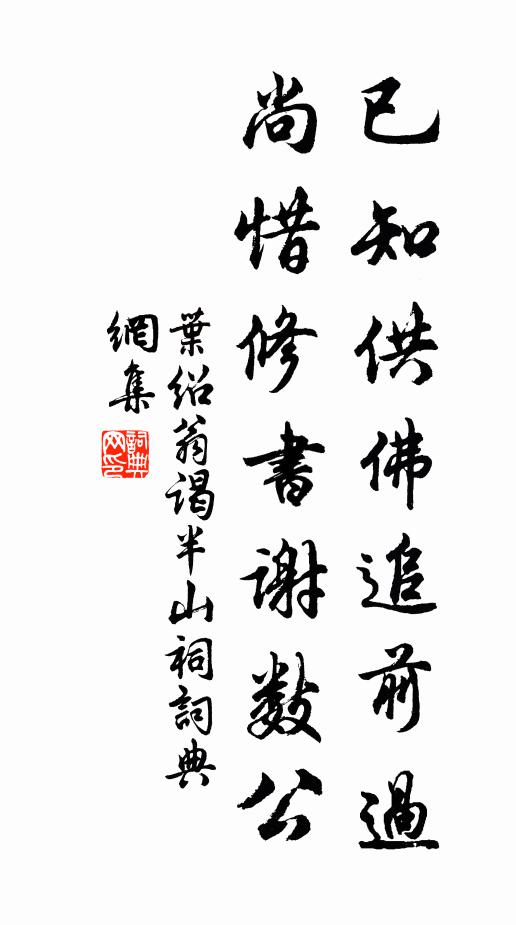 已知供佛追前過
尚惜修書謝數公
葉紹翁謁半山祠詞典
網集
詞典
网印